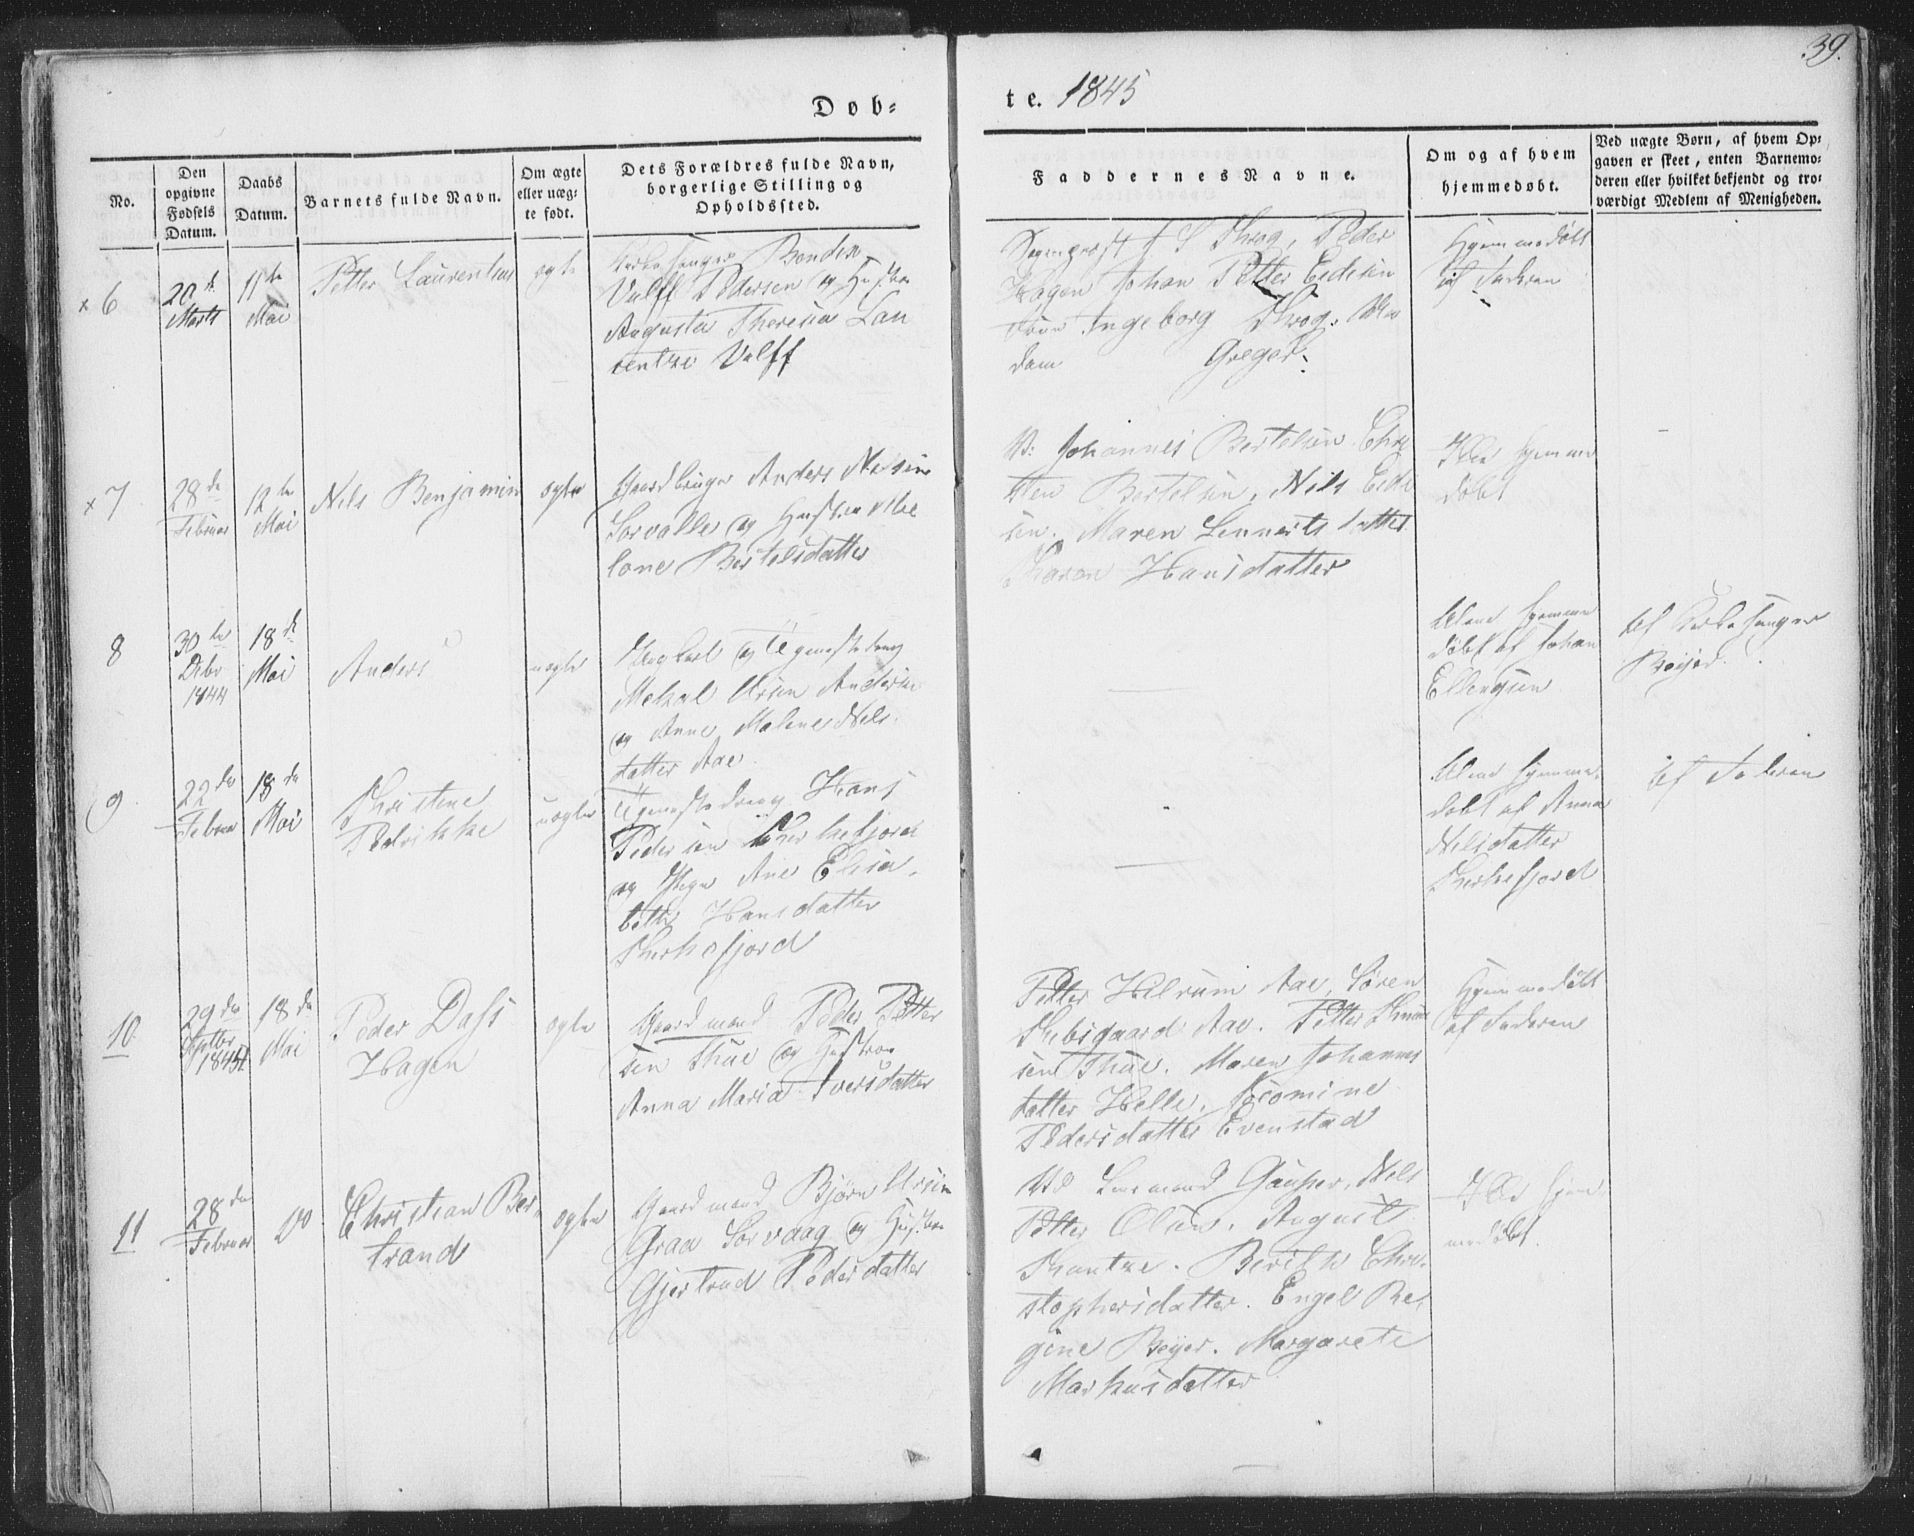 39.
Døb=
te. 1845
No.
Den
opgivne
Fødsels
Datum.
Daabs
Datum.
Barnets fulde Navn.
Om ægte
eller uæg-
te født.
Dets Forældres fulde Navn,
borgerlige Stilling og
Opholdssted.
Faddernes Navne.
Om og af hvem
hjemmedøbt.
Ved uægte Børn, af hvem Op-
gaven er skeet, enten Barnemo-
deren eller hvilket bekjendt og tro-
værdigt Medlem af Menigheden.
x 6
20de
Marts
11te
Mai
Petter Laurentius
ægte
Kirkesanger Bonde
Vulff Pedersen og Hustru
Augusta Theresia Lau
rentze Vulff
Krog, Peder
Hagen Johan Petter Eidisen
Ingeborg Krog. Ma
dam Greger.
Hjemmedøbt
af Faderen
x 7
28de
Februar
12te
Mai
Nils Benjamin
ægte
Gaardbruger Anders
Sorvalle og Hustru Ma
lene Bertelsdatter
V: Johannes Bertelsen. Chri
sten Bertelsen, Nils Eidi
sen. Maren Lennertsdatter
Hansdatter
Ikke hjemme
døbt
8
30te
Decbr
1844
18de
Mai
Anders
uægte
og Tjenestedreng
Mekal Ursin Andersen
og Anne Malene Nils
datter Aae.
Alene hjemme
døbt af Johan
Ellingsen
Af Kirkesanger
Beyer.
9
22de
Februar
18de
Mai
Christine
Pedrikke
uægte
Tjenestedreng Hans
Pedersen Kirkefjord
og Pige Ane Elisa
beth Hansdatter
Kirkefjord
Alene hjemme
døbt af Anna
Nilsdatter
Kirkefjord
Af Faderen
10
29de
Septbr
1845
18de
Mai
Peder Dass
Hagen
ægte
Gaardmand Peder Petter
sen Thue og Hustru
Anna Maria Iversdatter
Petter Helrum Aae, Søren
Aae. Petter
sen Thue. Maren Johannes
datter Helle. Jicomine
Pedersdatter Evenstad
Hjemmedøbt
af Faderen
11
28de
Februar
Do
Christian Ber-
trand
ægte
Gaardmand Bjørn Ursin
Graa Sorvaag og Hustru
Gjertrud Pedersdatter
Vd Lensmand Nils
Petter Olsen. August
Rantze. Berith Chri-
stophersdatter. Engel Re-
gine Beyer. Margarete
Markusdatter
Ikke hjem
medøbt.